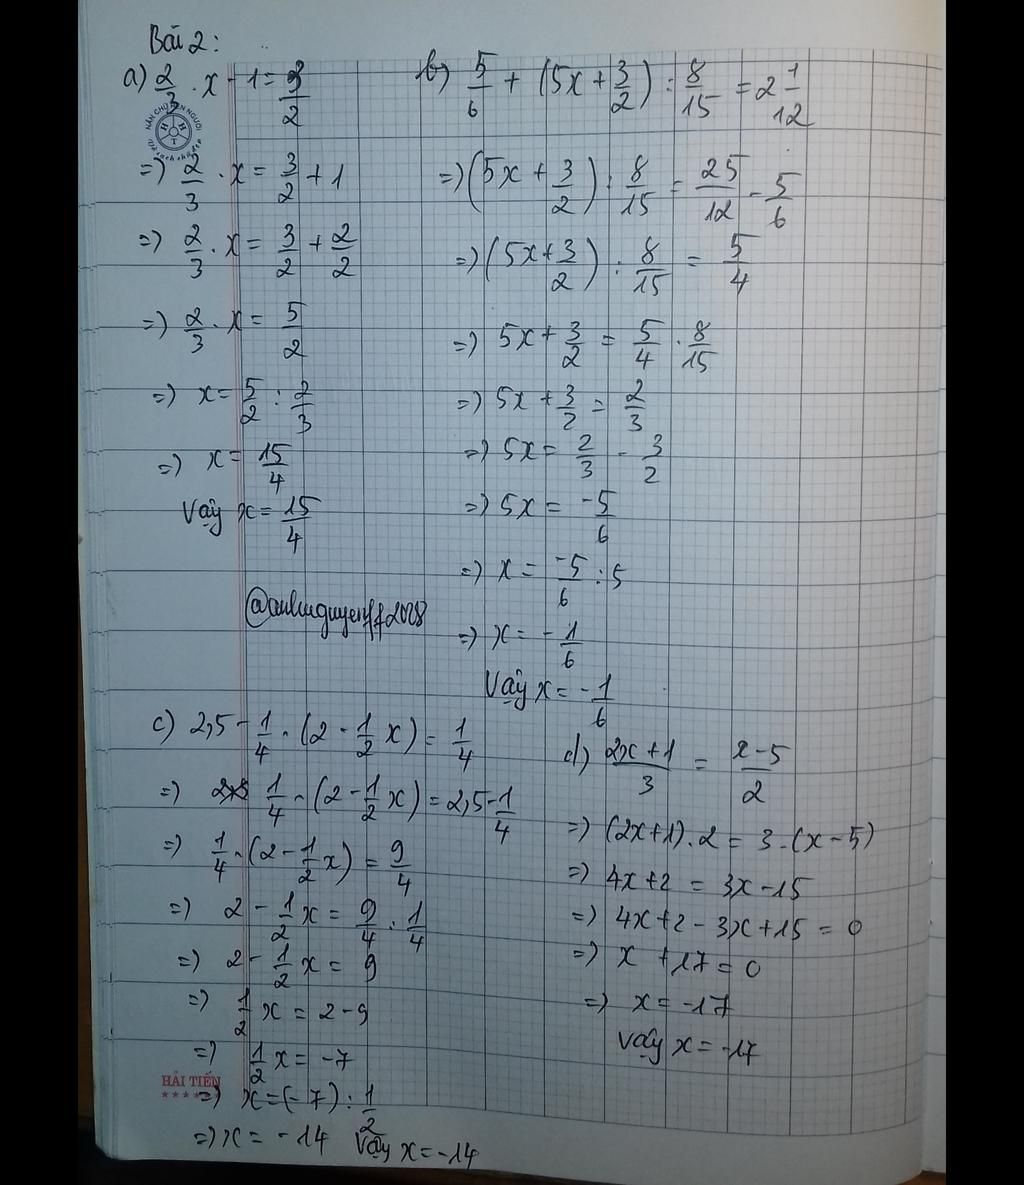 Bài 2:
a) 2/3 . x - 1 = 3/2
NÂN CHỮ NÊN NGƯỜI
H H T
=) 2/3 . x = 3/2 + 1
=) 2/3 . x = 3/2 + 2/2
=) 2/3 . x = 5/2
=) x = 5/2 : 2/3
=) x = 15/4
Vậy x = 15/4
b) 5/6 + (5x + 3/2) : 8/15 = 2 1/12
=) (5x + 3/2) : 8/15 = 25/12 - 5/6
=) (5x + 3/2) : 8/15 = 5/4
=) 5x + 3/2 = 5/4 . 8/15
=) 5x + 3/2 = 2/3
=) 5x = 2/3 - 3/2
=) 5x = -5/6
=) x = -5/6 : 5
=) x = -1/6
Vậy x = -1/6
c) 2,5 - 1/4 . (2 - 1/2 x) = 1/4
=) 1/4 . (2 - 1/2 x) = 2,5 - 1/4
=) 1/4 . (2 - 1/2 x) = 9/4
=) 2 - 1/2 x = 9/4 : 1/4
=) 2 - 1/2 x = 9
=) 1/2 x = 2 - 9
=) 1/2 x = -7
=) x = (-7) : 1/2
=) x = -14 Vậy x = -14
HẢI TIẾN
d) 2x + 1/3 = x - 5/2
=) (2x + 1) . 2 = 3 . (x - 5)
=) 4x + 2 = 3x - 15
=) 4x + 2 - 3x + 15 = 0
=) x + 17 = 0
=) x = -17
Vậy x = -17